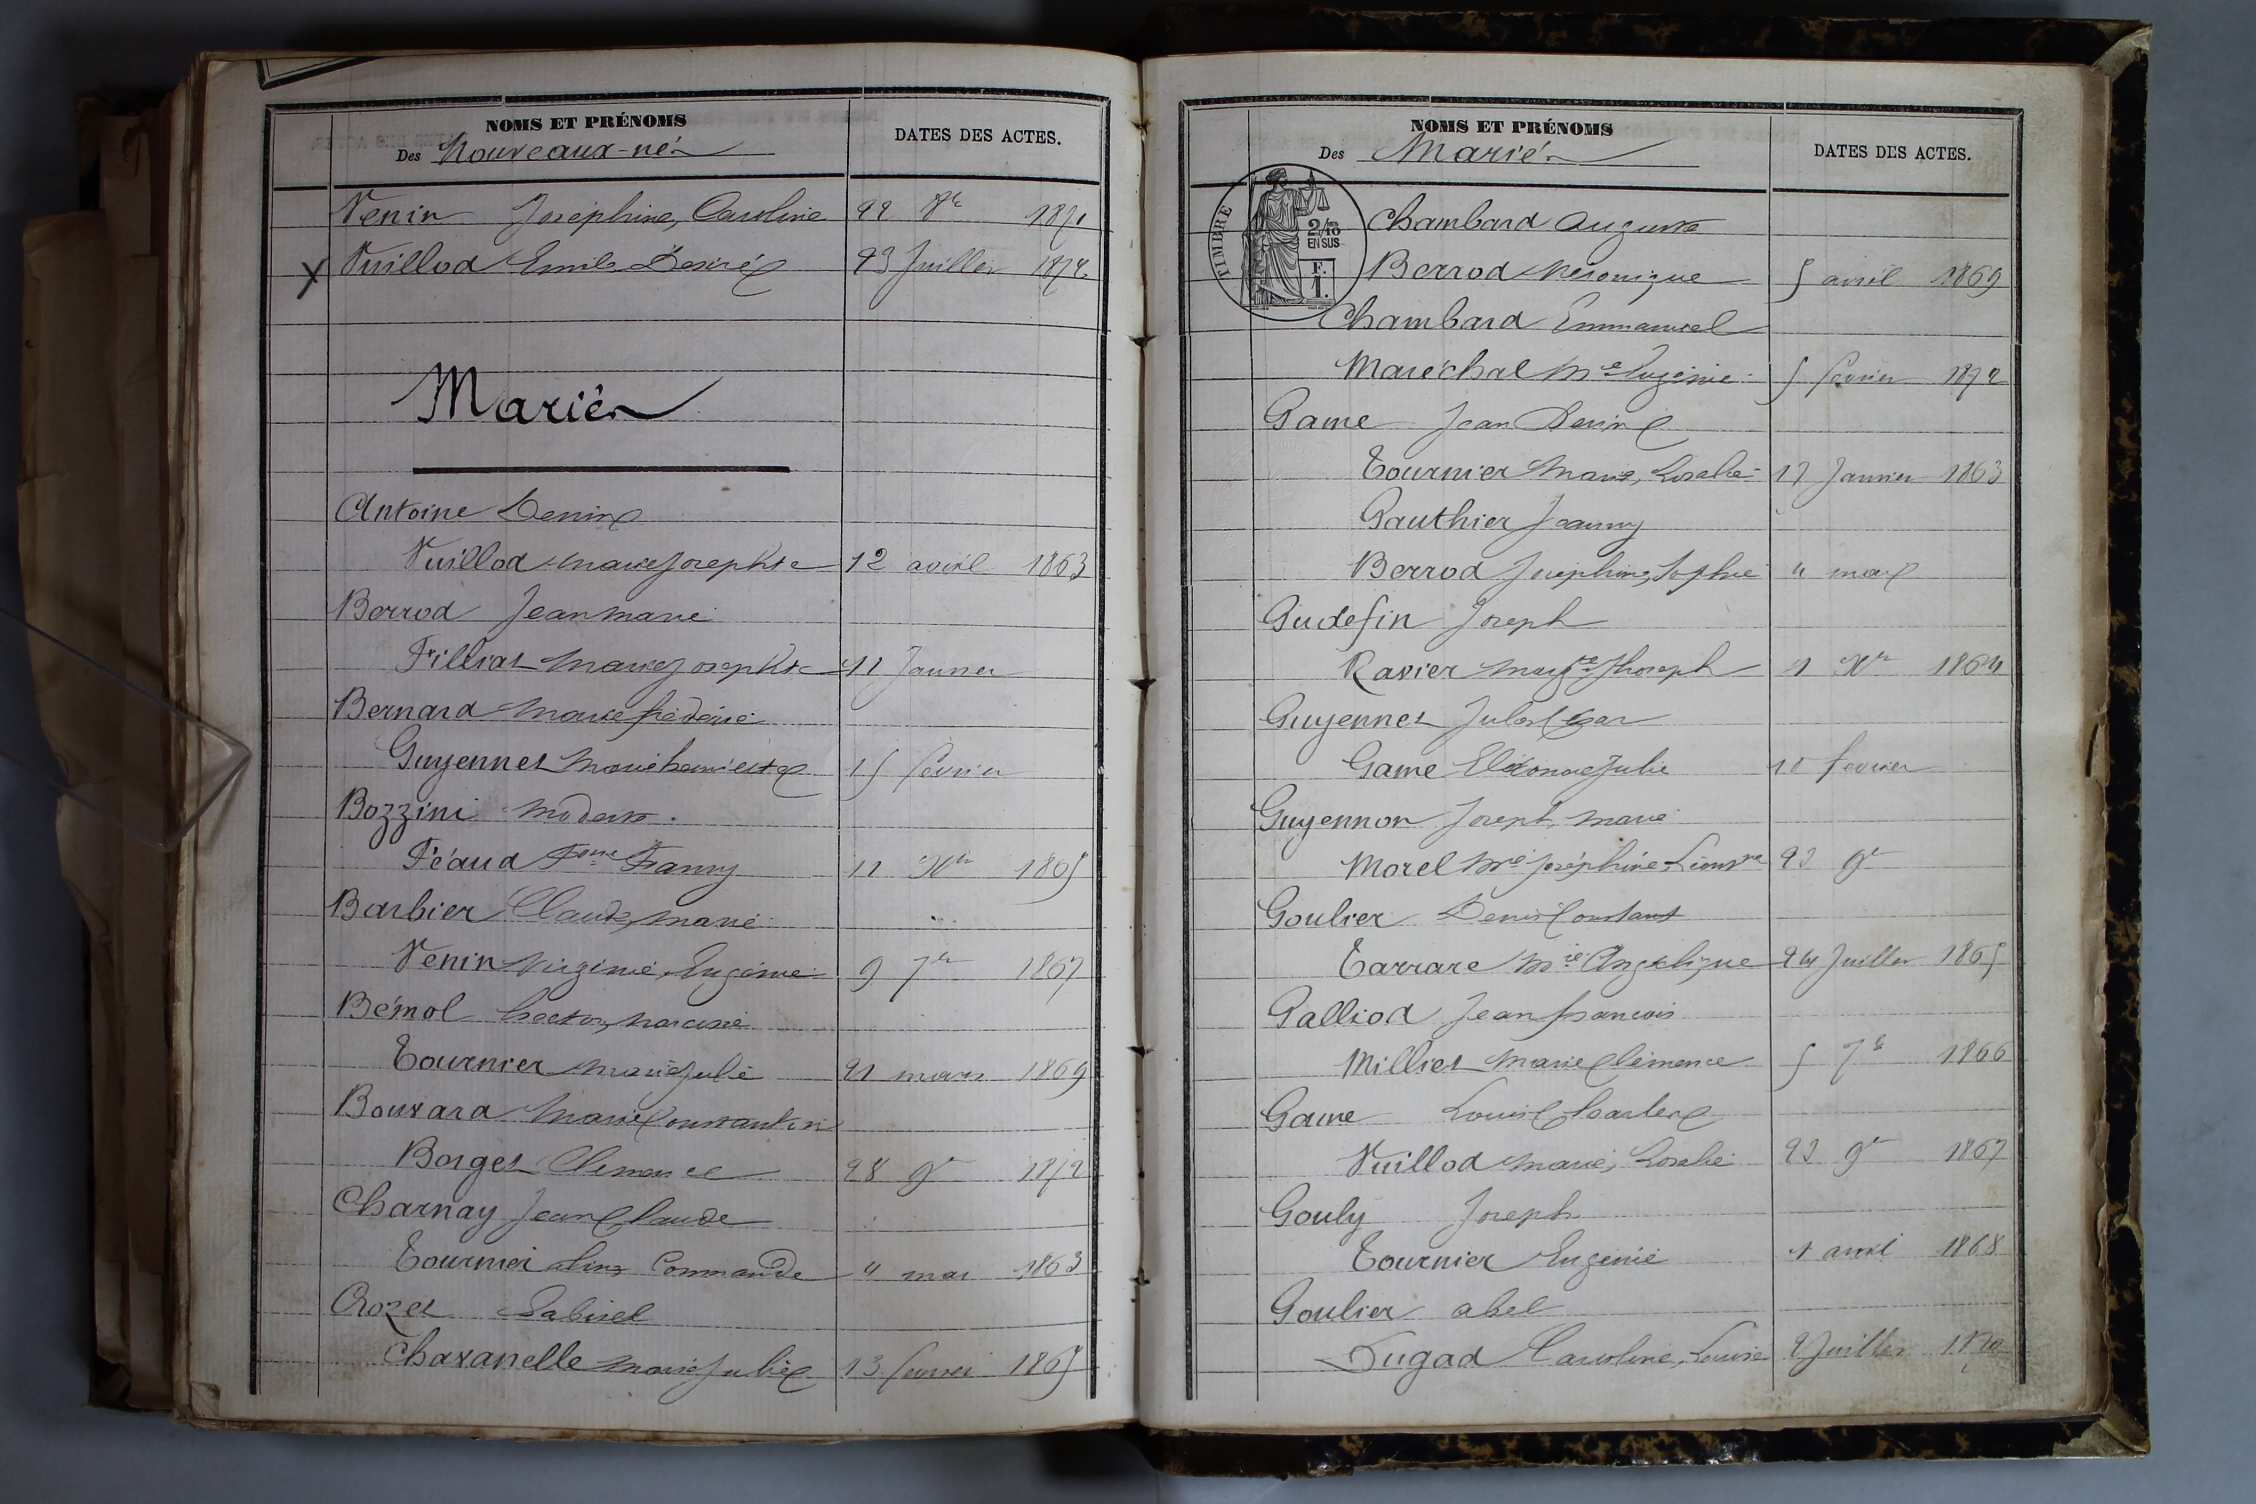 NOMS ET PRÉNOMS
Des Nouveaux-nés
DATES DES ACTES.
Venin Joséphine, Caroline 22 8bre 1871
X Vuillod Emile Désiré 23 Juillet 1872
Mariés
Antoine Denis
Vuillod Marie Josephte 12 avril 1863
Berrod Jean Marie
Filliat Marie Josephte 11 Janvier
Bernard Marie frédéric
Guyennet Marie henriette 15 février
Bozzini Modeste
Féaud Fanny 11 Xbre 1865
Barbier Claude, Marie
Venin Virginie, Eugénie 9 7bre 1867
Bémol hector, Narcisse
Tournier Marie Julie 21 mars 1869
Bouvard Marie Constantin
Borget Clémence 28 9bre 1872
Charnay Jean Claude
Tournier Commande 4 mai 1863
Crozet Gabriel
Chavanelle Marie Julie 13 février 1865
NOMS ET PRÉNOMS
Des Mariés
DATES DES ACTES.
TIMBRE
2/10 EN SUS
F. 1.
Chambard Auguste
Berrod Véronique 5 avril 1869
Chambard Emmanuel
Maréchal Mie Eugénie 5 février 1872
Game Jean Denis
Tournier Marie, Rosalie 17 Janvier 1863
Gauthier Jeanny
Berrod Joséphine, Sophie 4 mai
Gudefin Joseph
Ravier Joseph 1 Xbre 1864
Guyennet Jules
Game Eléonore Julie 10 février
Guyennon Joseph, Marie
Morel Mie Joséphine, Léontine 23 9bre
Goulier Denis Constant
Tarrare Mie Angélique 24 Juillet 1865
Galliod Jean françois
Milliet Marie Clémence 5 7bre 1866
Game Louis Charles
Vuillod Marie, Rosalie 23 9bre 1867
Gouly Joseph
Tournier Eugénie 1 avril 1868
Goulier abel
Dugad Caroline, Louise 2 Juillet 1870